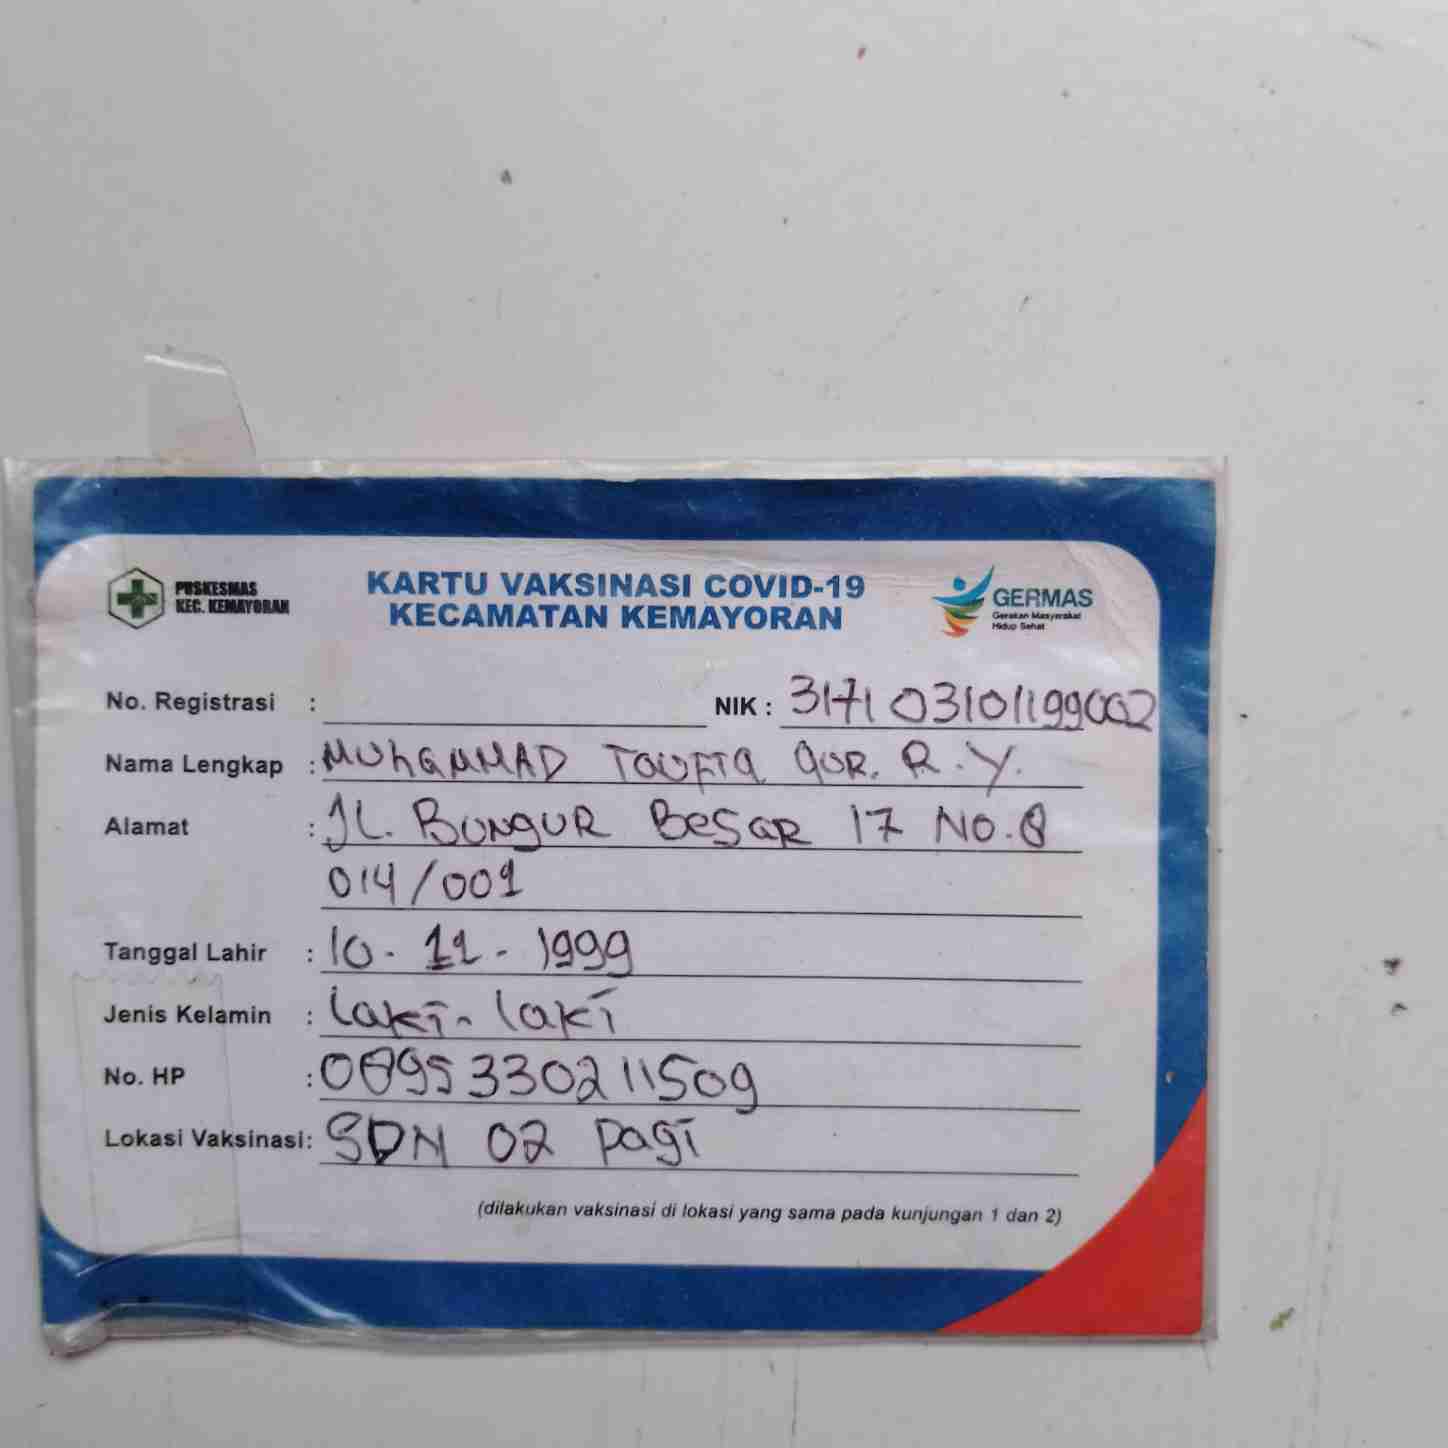 PUSKESMAS
KEC. KEMAYORAN
KARTU VAKSINASI COVID-19
KECAMATAN KEMAYORAN
GERMAS
Gerakan Masyarakat
Hidup Sehat
No. Registrasi :
NIK : 3171 03101199002
Nama Lengkap : MUhaMMAD TaUFIq qUR. R. Y.
Alamat : JL. BUNgUR BeSaR 17 No. 8
014/001
Tanggal Lahir : 10 - 11 - 1999
Jenis Kelamin : laki - laki
No. HP : 0895330211509
Lokasi Vaksinasi: SDN 02 Pagi
(dilakukan vaksinasi di lokasi yang sama pada kunjungan 1 dan 2)